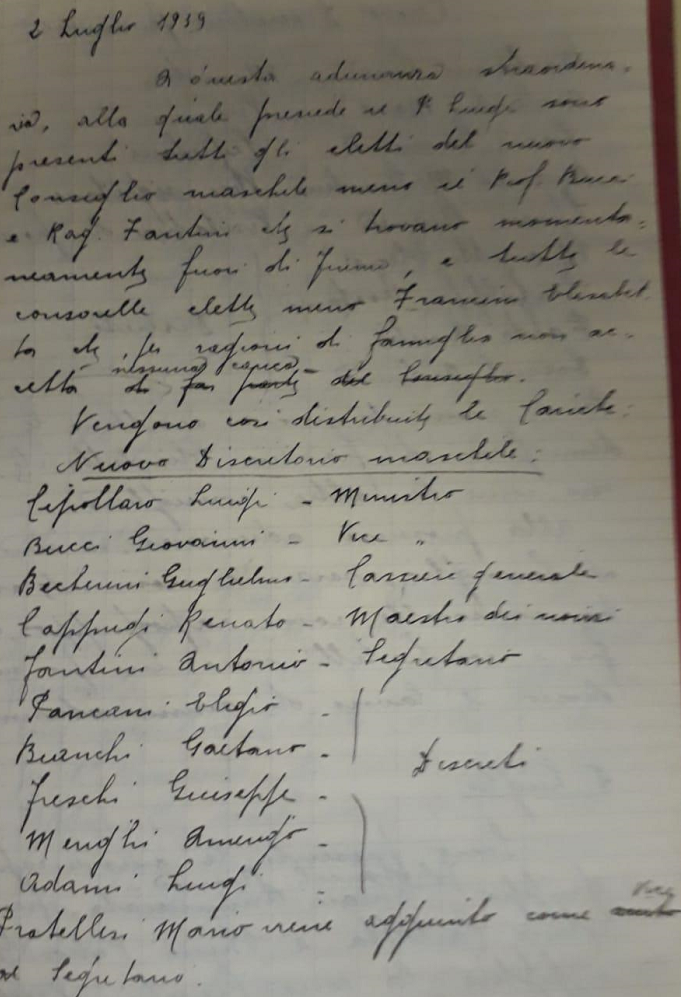 2 Luglio 1939
A questa adunanza straordina-
ria, alla quale presiede il P. Luigi sono
presenti tutti gli eletti del nuovo
Consiglio maschile meno il Prof. Bucci
e Rag. Fantini che si trovano momenta-
neamente fuori di Firenze, e tutte le
consorelle elette meno Francini Elisabet-
ta che, per ragioni di famiglia non ac-
- nessuna carica -
cetta di far parte del Consiglio.
Vengono così distribuite le Cariche:
Nuovo Discretorio maschile:
Cipollaro Luigi - Ministro
Bucci Giovanni - Vice "
Becherini Guglielmo - Cassiere generale
Cappugi Renato - Maestro dei novizi
Fantini Antonio - Segretario
Pancani Eligio -
Bianchi Gaetano -
Discreti
Freschi Giuseppe -
Menghi Amerigo -
Adami Luigi -
Pratellesi Mario viene aggiunto come
Vice
al Segretario.